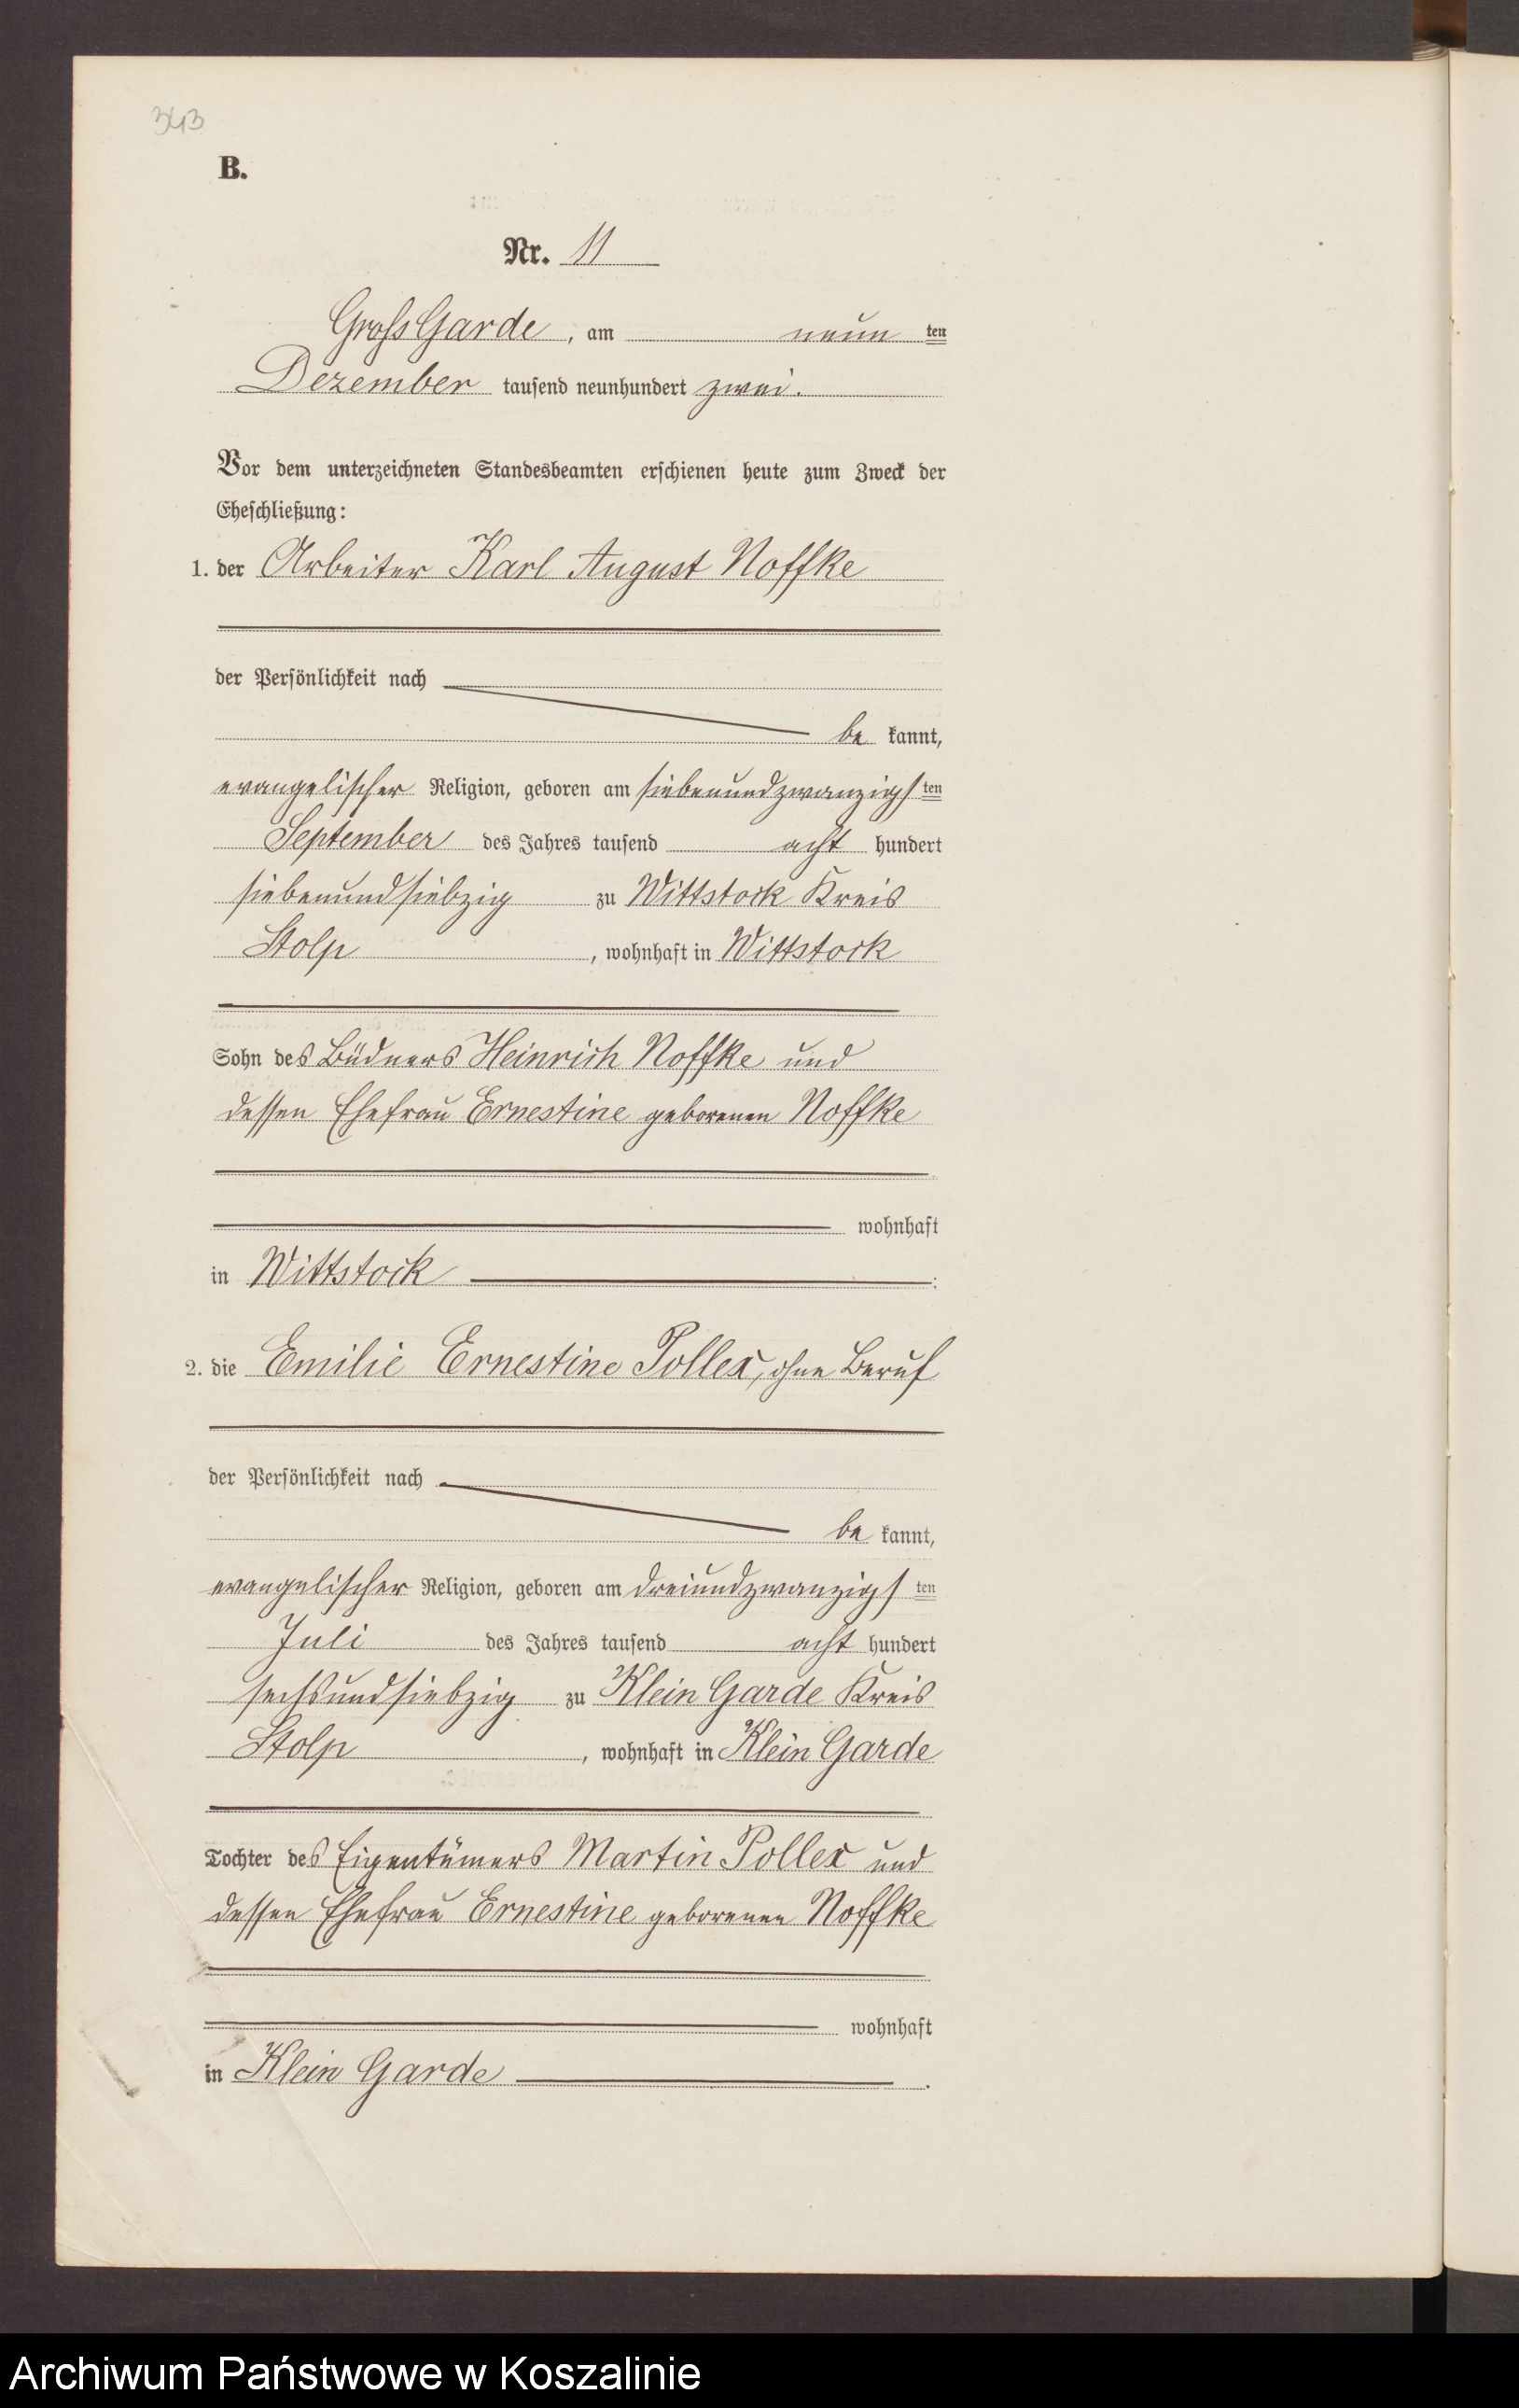 343
B.
Nr. 11
Gross Garde, am neun ten
Dezember tausend neunhundert zwei.
Vor dem unterzeichneten Standesbeamten erschienen heute zum Zweck der
Eheschließung:
1. der Arbeiter Karl August Noffke
der Persönlichkeit nach
be kannt,
evangelischer Religion, geboren am siebenundzwanzigsten
September des Jahres tausend acht hundert
siebenundsiebzig zu Wittstock Kreis
Stolp, wohnhaft in Wittstock
Sohn des Büdners Heinrich Noffke und
dessen Ehefrau Ernestine geborenen Noffke
wohnhaft
in Wittstock ;
2. die Emilie Ernestine Pollex, ohne Beruf
der Persönlichkeit nach
be kannt,
evangelischer Religion, geboren am dreiundzwanzigsten
Juli des Jahres tausend acht hundert
sechsundsiebzig zu Klein Garde Kreis
Stolp, wohnhaft in Klein Garde
Tochter des Eigentümers Martin Pollex und
dessen Ehefrau Ernestine geborenen Noffke
wohnhaft
in Klein Garde .
Archiwum Państwowe w Koszalinie